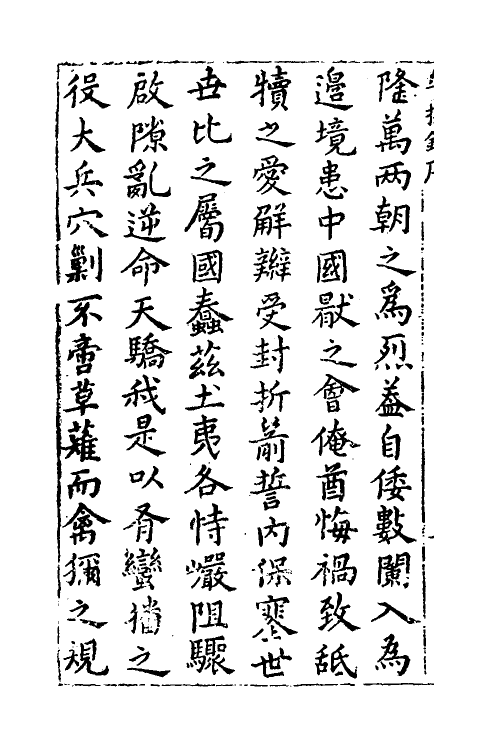 隆萬两朝之爲烈葢自倭數闌入為
邉境患中國厭之會俺酋悔禍致舐
犢之愛解辮受封折箭誓内保塞世
世比之屬國蠢兹土夷各恃巖阻驟
啟隙亂逆命天驕我是以有蠻播之
役大兵穴剿不啻草薙而禽獮之規